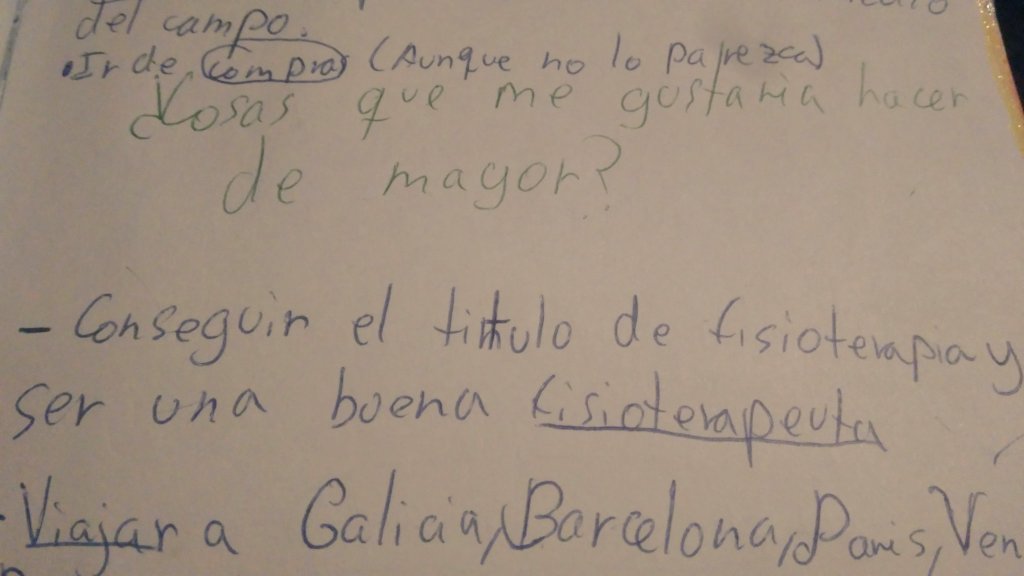 del campo.
•Ir de compra (Aunque no lo parezca)
¿Cosas que me gustaria hacer
de mayor?
- Conseguir el titulo de fisioterapia y
ser una buena fisioterapeuta
·Viajar a Galicia, Barcelona, Paris, Ven